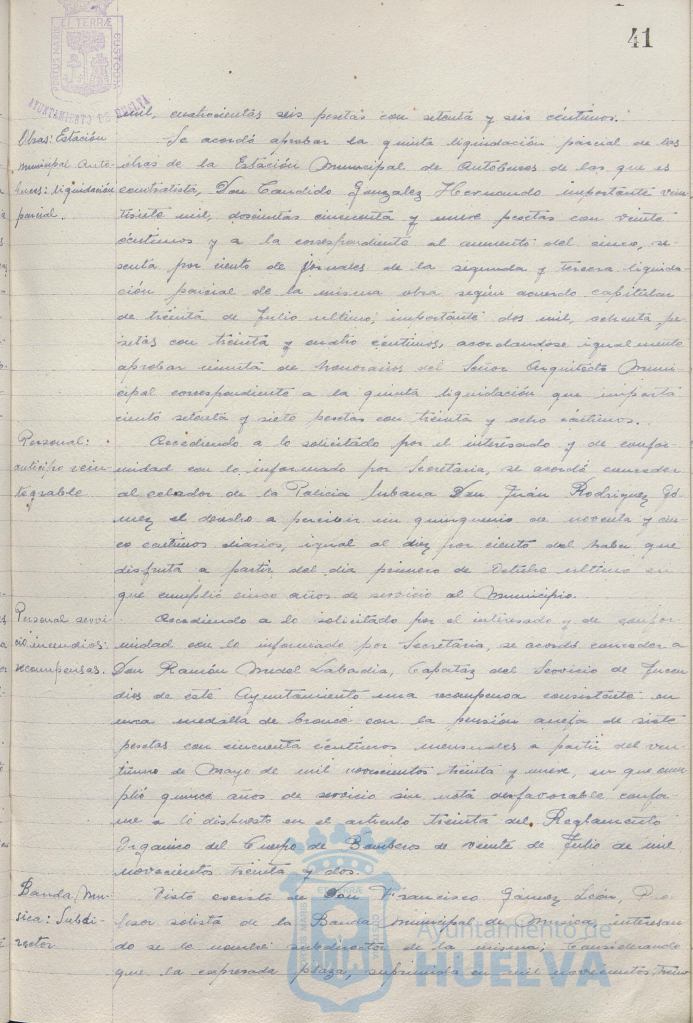 41
PORTUS MARIS ET TERRÆ CUSTODIA
AYUNTAMIENTO DE HUELVA
mil, cuatrocientas seis pesetas con setenta y seis céntimos.
Obras: Estación
municipal Auto-
buses: liquidación
parcial.
Se acordó aprobar la quinta liquidación parcial de las
obras de la Estación Municipal de Autobuses de las que es
contratista, Don Candido González Hernando importante vein-
tisiete mil, doscientas cincuenta y nueve pesetas con veinte
céntimos y a la correspondiente al aumento del cinco, se-
senta por ciento de jornales de la segunda y tercera liquida-
ción parcial de la misma obra según acuerdo capitular
de treinta de Julio ultimo, importante dos mil, ochenta pe-
setas con treinta y cuatro céntimos, acordandose igualmente
aprobar minuta de honorarios del Señor Arquitecto Muni-
cipal correspondiente a la quinta liquidación que importa
ciento setenta y siete pesetas con treinta y ocho céntimos.
Personal:
anticipo rein-
tegrable
Accediendo a lo solicitado por el interesado y de confor-
midad con lo informado por Secretaria, se acordó conceder
al celador de la Policia Urbana Don Juán Rodriguez Gó-
mez el derecho a percibir un quinquenio de noventa y cin-
co centimos diarios, igual al diez por ciento del haber que
disfruta a partir del dia primero de Octubre ultimo en
que cumplió cinco años de servicio al Municipio.
Personal servi-
cio incendios:
recompensas.
Accediendo a lo solicitado por el interesado y de confor-
midad con lo informado por Secretaria, se acordó conceder a
Don Ramón Mudel Labadia, Capatáz del Servicio de Incen-
dios de este Ayuntamiento una recompensa consistente en
una medalla de bronce con la pensión aneja de siete
pesetas con cincuenta céntimos mensuales a partir del vein-
tiuno de Mayo de mil novecientos treinta y nueve, en que cum-
plió quince años de servicio sin nota desfavorable confor-
me a lo dispuesto en el articulo treinta del Reglamento
Organico del Cuerpo de Bomberos de veinte de Julio de mil
novecientos treinta y dos.
Banda Mu-
sica: Subdi-
rector
Visto escrito de Don Francisco Gámez León, Pro-
fesor solista de la Banda Municipal de Musica, interesan-
do se le nombre subdirector de la misma; Considerando
que la expresada plaza, suprimida en mil novecientos trein-
Ayuntamiento de
HUELVA